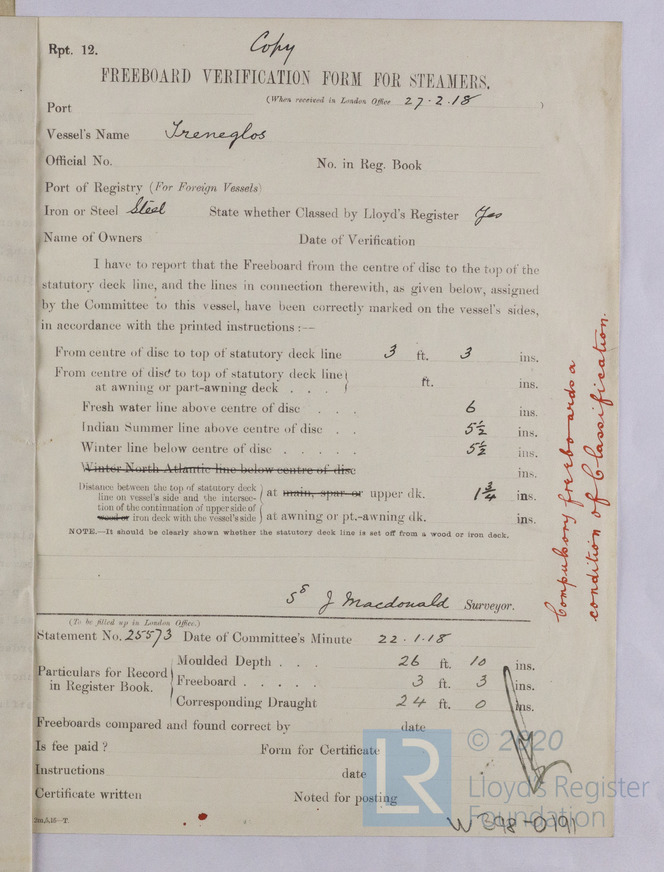 Rpt. 12.
Copy
FREEBOARD VERIFICATION FORM FOR STEAMERS.
(When received in London Office 27.2.18)
Port
Vessel's Name Treneglos
Official No. No. in Reg. Book
Port of Registry (For Foreign Vessels)
Iron or Steel Steel State whether Classed by Lloyd's Register Yes
Name of Owners Date of Verification
I have to report that the Freeboard from the centre of disc to the top of the
statutory deck line, and the lines in connection therewith, as given below, assigned
by the Committee to this vessel, have been correctly marked on the vessel's sides,
in accordance with the printed instructions :—
From centre of disc to top of statutory deck line 3 ft. 3 ins.
From centre of disc to top of statutory deck line
at awning or part-awning deck . . . ft. ins.
Fresh water line above centre of disc . . . 6 ins.
Indian Summer line above centre of disc . . 5½ ins.
Winter line below centre of disc . . . . . 5½ ins.
Winter North Atlantic line below centre of disc ins.
Distance between the top of statutory deck
line on vessel's side and the intersec-
tion of the continuation of upper side of
wood or iron deck with the vessel's side
at main, spar or upper dk. 1¾ ins.
at awning or pt.-awning dk. ins.
NOTE.—It should be clearly shown whether the statutory deck line is set off from a wood or iron deck.
Compulsory freeboards a
condition of Classification.
Sd J Macdonald Surveyor.
(To be filled up in London Office.)
Statement No. 25573 Date of Committee's Minute 22.1.18
Particulars for Record
in Register Book.
Moulded Depth . . . 26 ft. 10 ins.
Freeboard . . . . . 3 ft. 3 ins.
Corresponding Draught 24 ft. 0 ins.
Freeboards compared and found correct by date
Is fee paid ? Form for Certificate
Instructions date
Certificate written Noted for posting
LR
© 2020
Lloyd's Register
Foundation
W398-0191